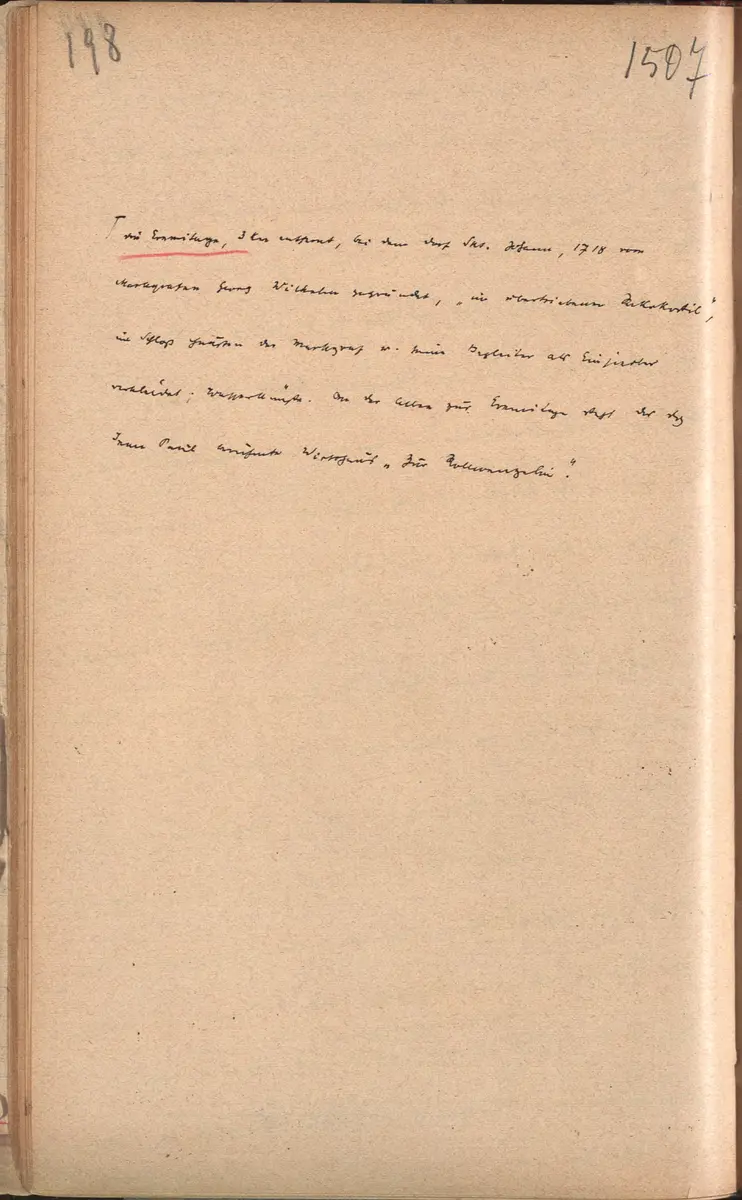 198
1507
die Eremitage, 3 km entfernt, bei dem Dorf Skt. Johann, 1718 vom
Markgrafen Georg Wilhelm gegründet, „im übertriebenen Rokokostil",
im Schloß hausten der Markgraf u. seine Begleiter als Einsiedler
verkleidet; Wasserkünste. An der Allee zur Eremitage liegt das durch
Jean Paul berühmte Wirtshaus „Zur Rollwenzelin".